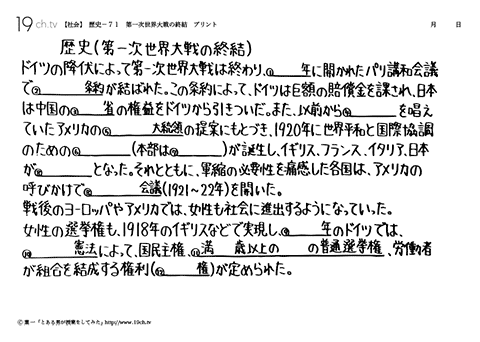 19ch.tv 【社会】 歴史－71 第一次世界大戦の終結 プリント 月 日
歴史(第一次世界大戦の終結)
ドイツの降伏によって第一次世界大戦は終わり、①____年に開かれたパリ講和会議
で②____条約が結ばれた。この条約によって、ドイツは巨額の賠償金を課され、日本
は中国の③____省の権益をドイツから引きついだ。また、以前から④____を唱え
ていたアメリカの⑤____大統領の提案にもとづき、1920年に世界平和と国際協調
のための⑥____(本部は⑦____)が誕生し、イギリス、フランス、イタリア、日本
が⑧____となった。それとともに、軍縮の必要性を痛感した各国は、アメリカの
呼びかけで⑨____会議(1921～22年)を開いた。
戦後のヨーロッパやアメリカでは、女性も社会に進出するようになっていった。
女性の選挙権も、1918年のイギリスなどで実現し、⑩____年のドイツでは、
⑪____憲法によって、国民主権、⑫満__歳以上の____の普通選挙権、労働者
が組合を結成する権利(⑬____権)が定められた。
Ⓒ葉一「とある男が授業をしてみた」http://www.19ch.tv